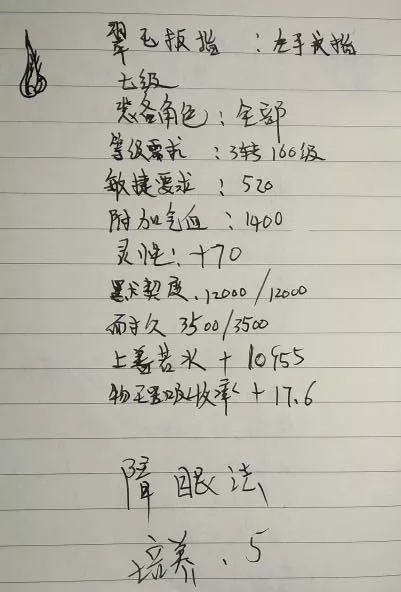 翠毛扳指：左手戒指
七级
装备角色：全部
等级要求：3转160级
敏捷要求：520
附加气血：1400
灵性：+70
默契度．12000/12000
耐久 3500/3500
上善若水+10955
物理吸收率+17.6
障眼法
培养、5